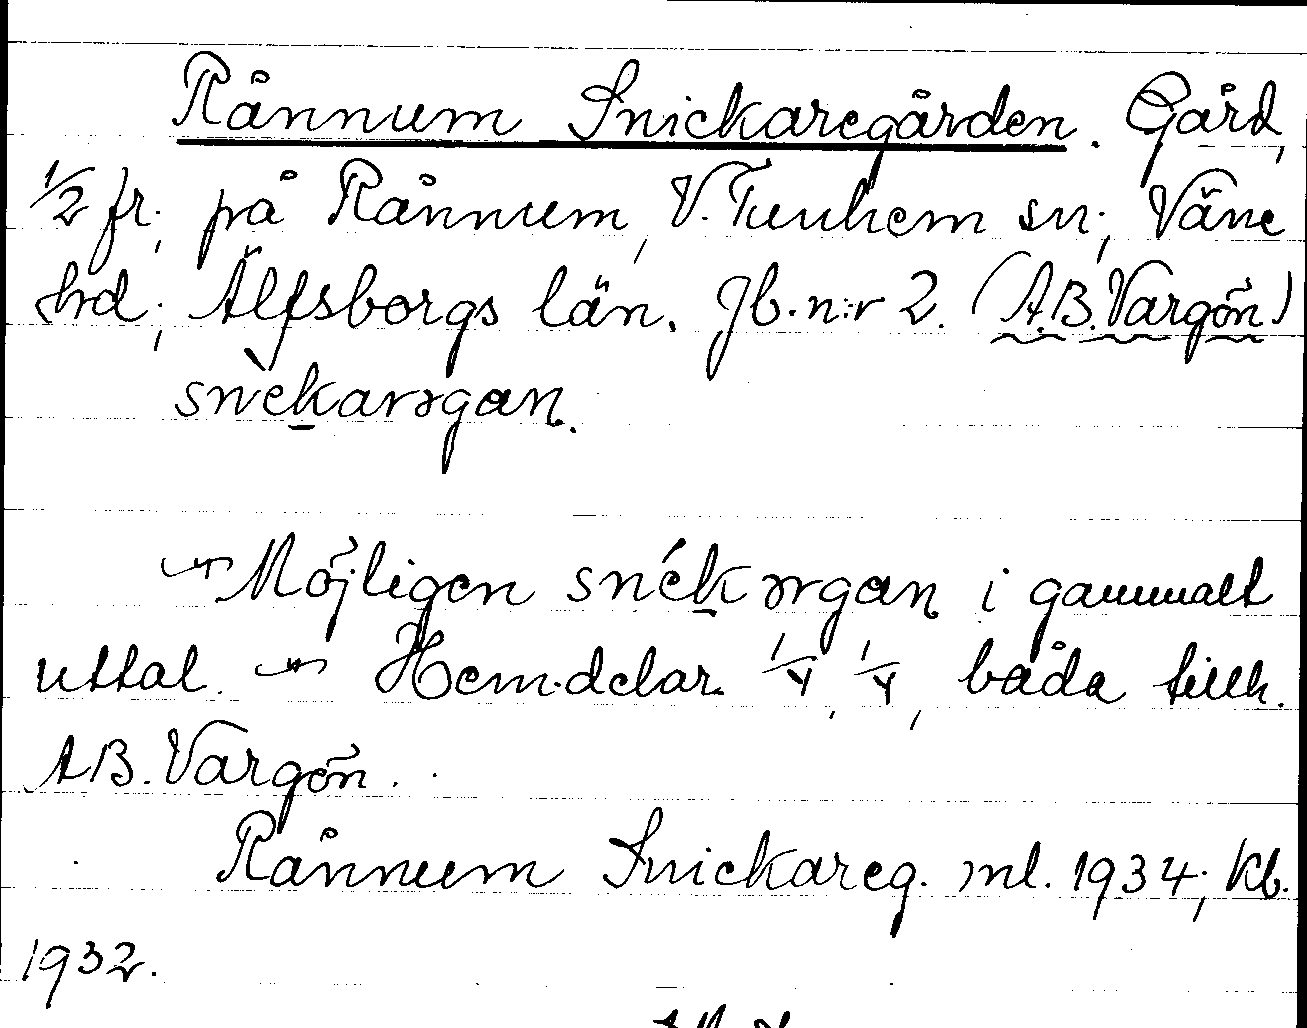 Rånnum Snickaregården. Gård,
1/2 fr., på Rånnum, V. Tunhem sn., Väne
hrd., Älfsborgs län. Jb. n:r 2. (A.B. Vargön)
snèkarəgan.
Möjligen snékərgan i gammalt
uttal. Hem.delar. 1/4, 1/4, båda tillh.
AB. Vargön.
Rånnum Snickareg. ml. 1934; Kb.
1932.